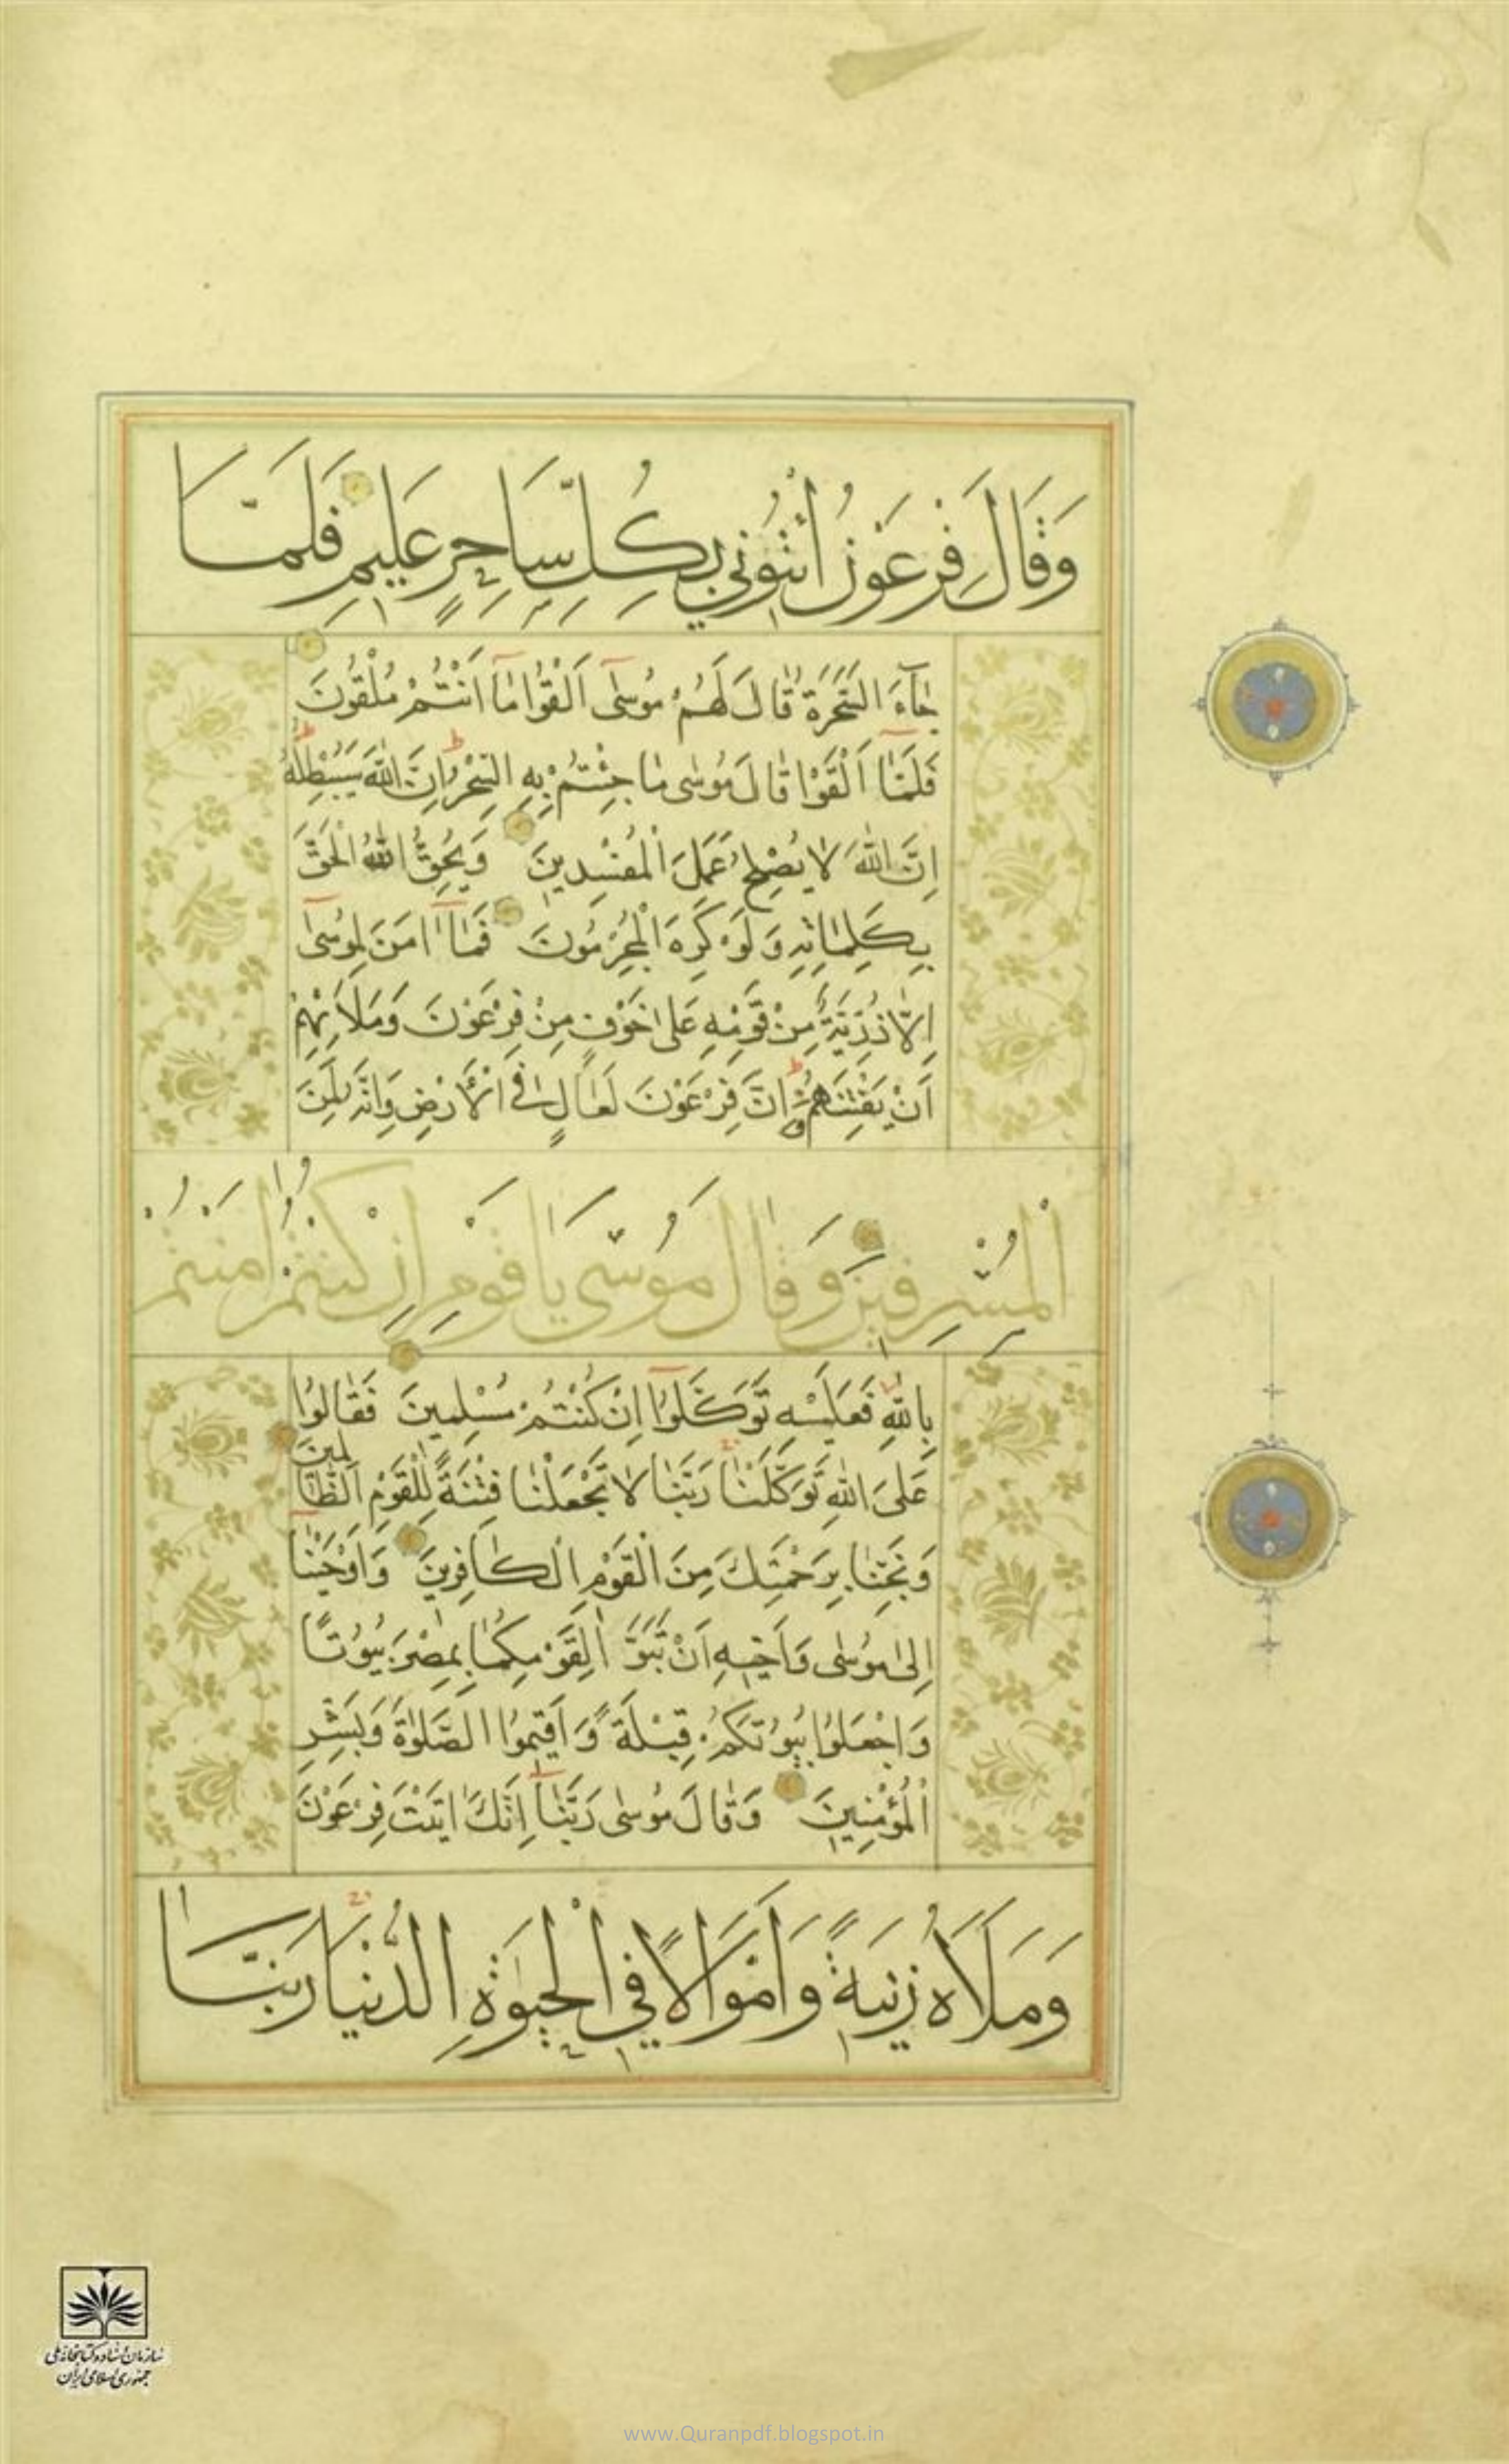 وَقَالَ فِرْعَوْنُ ائْتُونِي بِكُلِّ سَاحِرٍ عَلِيمٍ فَلَمَّا
جَآءَ السَّحَرَةُ قَالَ لَهُمْ مُوسَىٰٓ اَلْقُوا مَٓا اَنْتُمْ مُلْقُونَ
فَلَمَّٓا اَلْقَوْا قَالَ مُوسٰى مَا جِئْتُمْ بِهِ السِّحْرُ اِنَّ اللّٰهَ سَيُبْطِلُهُ
اِنَّ اللّٰهَ لَا يُصْلِحُ عَمَلَ الْمُفْسِدِينَ وَيُحِقُّ اللّٰهُ الْحَقَّ
بِكَلِمَاتِهِ وَلَوْ كَرِهَ الْمُجْرِمُونَ فَمَٓا اٰمَنَ لِمُوسٰٓى
اِلَّا ذُرِّيَّةٌ مِنْ قَوْمِهِ عَلٰى خَوْفٍ مِنْ فِرْعَوْنَ وَمَلَا۬ئِهِمْ
اَنْ يَفْتِنَهُمْ اِنَّ فِرْعَوْنَ لَعَالٍ فِي الْأَرْضِ وَاِنَّهُ لَمِنَ
الْمُسْرِفِينَ وَقَالَ مُوسٰى يَا قَوْمِ اِنْ كُنْتُمْ اٰمَنْتُمْ
بِاللّٰهِ فَعَلَيْهِ تَوَكَّلُوٓا اِنْ كُنْتُمْ مُسْلِمِينَ فَقَالُوا
عَلَى اللّٰهِ تَوَكَّلْنَا رَبَّنَا لَا تَجْعَلْنَا فِتْنَةً لِلْقَوْمِ الظَّالِمِينَ
وَنَجِّنَا بِرَحْمَتِكَ مِنَ الْقَوْمِ الْكَافِرِينَ وَاَوْحَيْنَٓا
اِلٰى مُوسٰى وَاَخِيهِ اَنْ تَبَوَّاٰ لِقَوْمِكُمَا بِمِصْرَ بُيُوتًا
وَاجْعَلُوا بُيُوتَكُمْ قِبْلَةً وَاَقِيمُوا الصَّلٰوةَ وَبَشِّرِ
الْمُؤْمِنِينَ وَقَالَ مُوسٰى رَبَّنَٓا اِنَّكَ اٰتَيْتَ فِرْعَوْنَ
وَمَلَاَهُ زِينَةً وَاَمْوَالًا فِي الْحَيٰوةِ الدُّنْيَا رَبَّنَا
سازمان اسناد و کتابخانه ملی
جمهوری اسلامی ایران
www.Quranpdf.blogspot.in